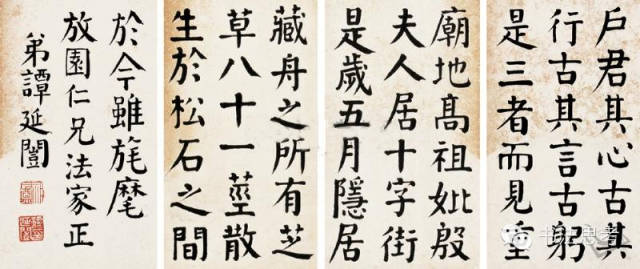 戶君其心古其
行古其言古躬
是三者而見重
廟地髙祖妣殷
夫人居十字街
是歲五月隱居
藏舟之所有芝
草八十一莖散
生於松石之間
於今雖旄麾
放園仁兄法家正
弟譚延闓